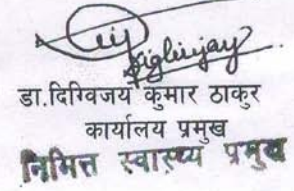 Digbijay
डा.दिग्विजय कुमार ठाकुर
कार्यालय प्रमुख
निमित्त स्वास्थ्य प्रमुख